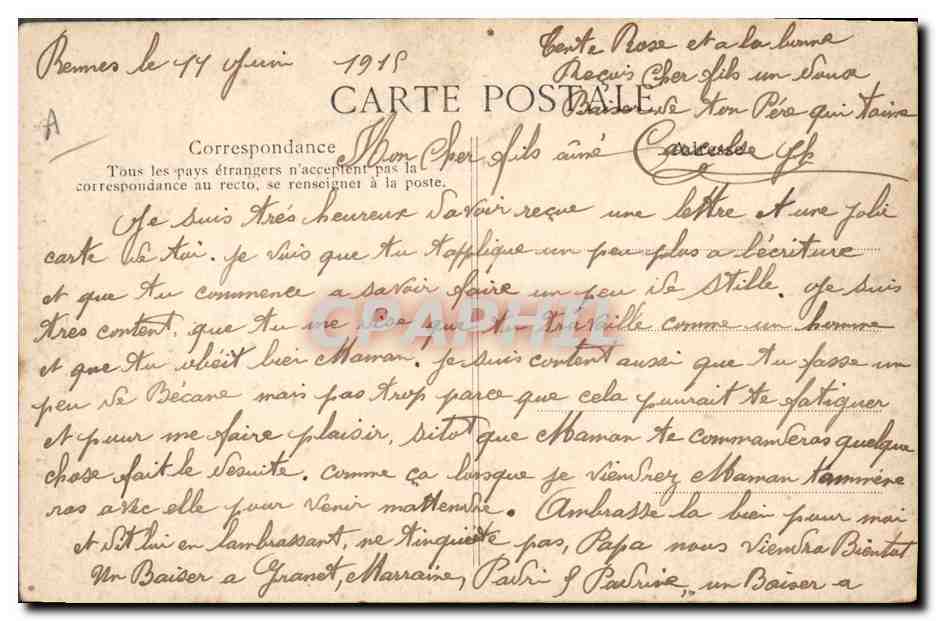 Rennes le 11 Juin 1915
CARTE POSTALE
Correspondance
Tous les pays étrangers n'acceptent pas la
correspondance au recto, se renseigner à la poste.
A
Mon Cher fils âiné
Je suis trés heureux d'avoir reçue une lettre et une jolie
carte de toi. Je vois que tu t'applique un peu plus a l'écriture
et que tu commence a savoir faire un peu de stille. Je suis
tres content, que tu me dise que tu travaille comme un homme
et que tu obéit bien Maman. Je suis content aussi que tu fasse un
peu de Bécane mais pas trop parce que cela pourait te fatiguer
et pour me faire plaisir, sitot que Maman te commanderas quelque
chose fait le desuite. comme ça lorsque je viendrez Maman tammène
ras avec elle pour venir mattendre. Ambrasse la bien pour moi
et dit lui en lambrassant, ne tinquiète pas, Papa nous viendra Bientot
Un Baiser a Granet, Marraine, Padri & Padrine, un Baiser a
Tente Rose et a la bonne
Reçois Cher fils un doux
Baiser de ton Père qui t'aime
CPAPHIL